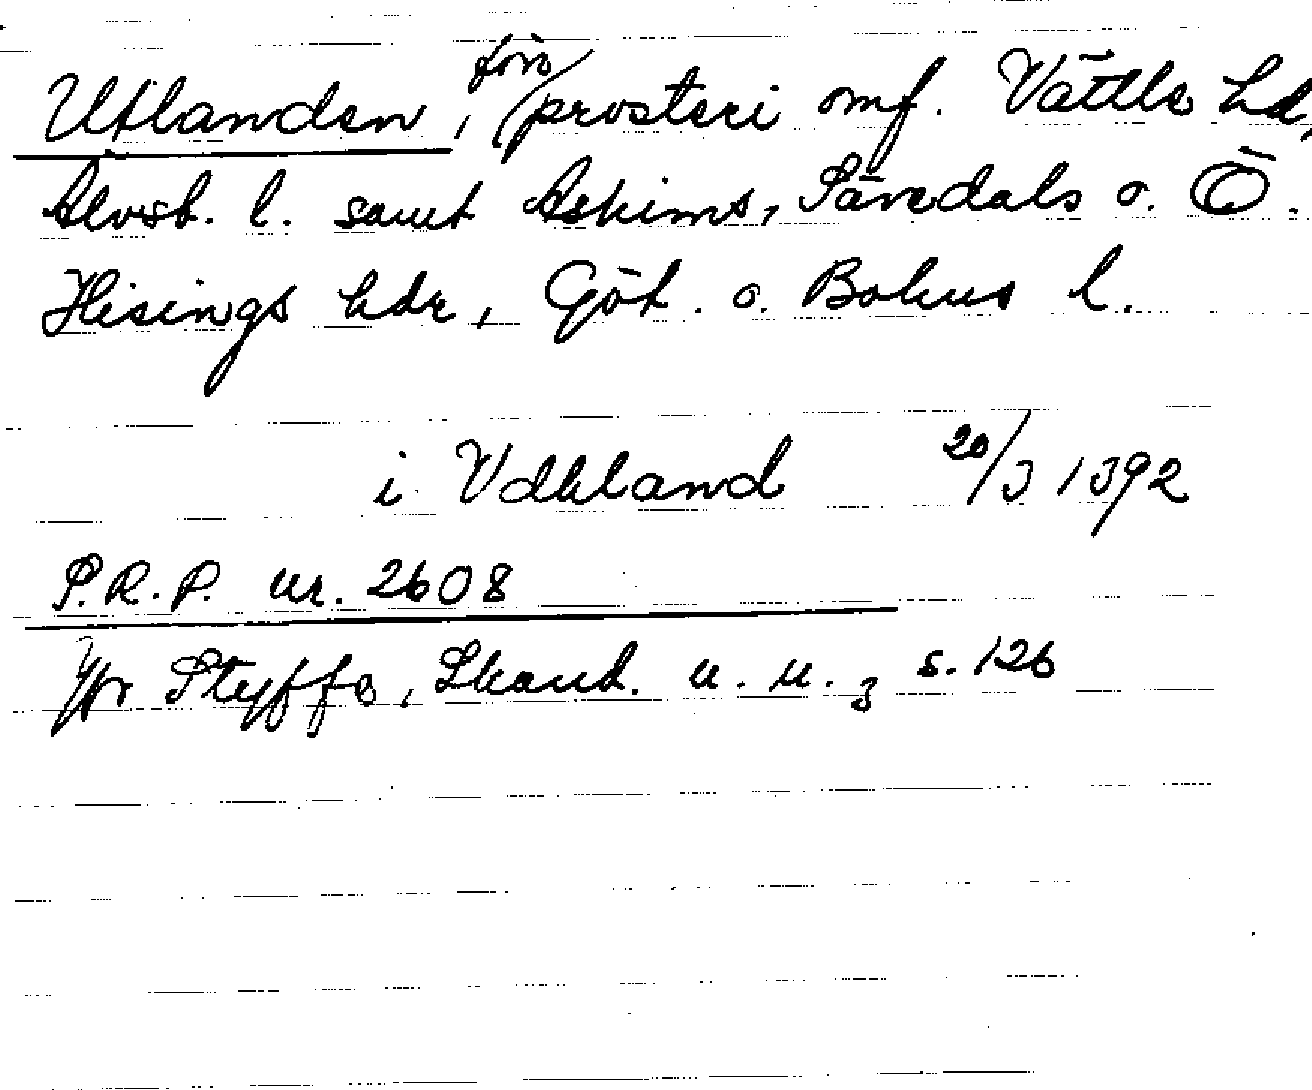 Utlanden, förr prosteri omf. Vättle hd,
Älvsb. l. samt Askims, Sävedals o. Ö.
Hisings hdr, Göt. o. Bohus l.
i Vdhland 20/3 1392
S.R.P. nr. 2608
Jfr Styffe, Skand. u. u.3 s. 126